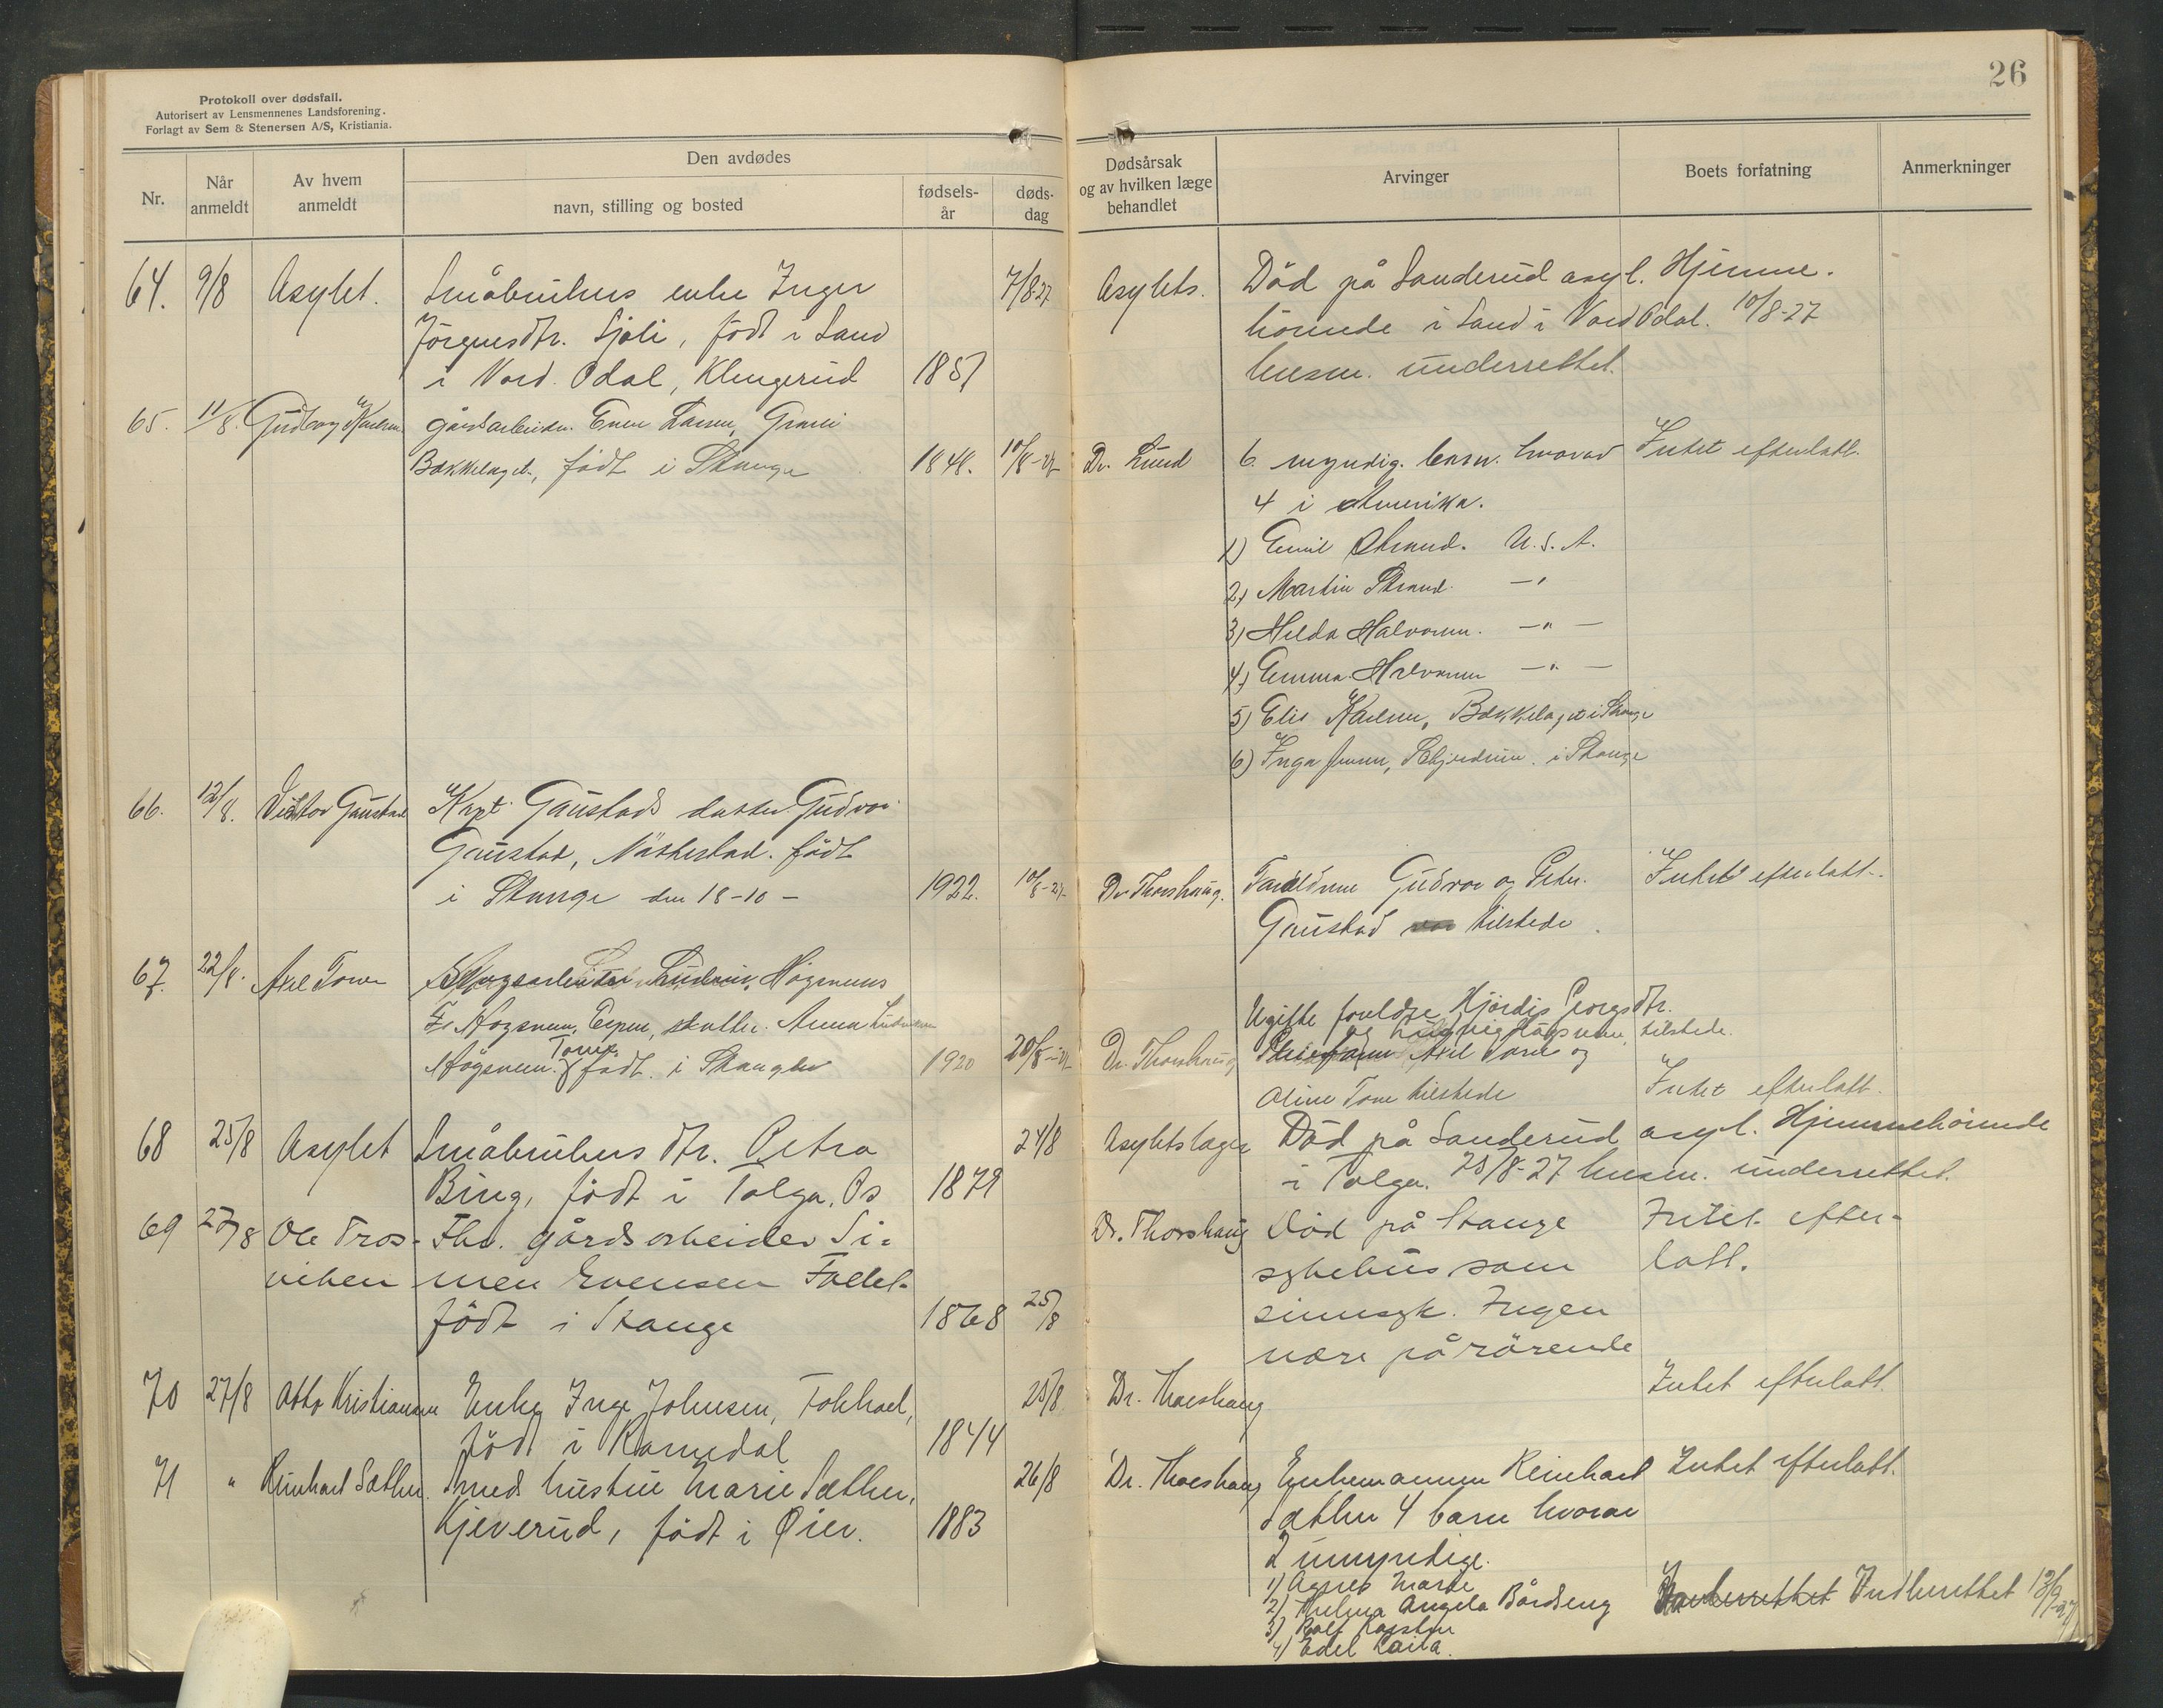 26
Protokoll over dødsfall.
Autorisert av Lensmennenes Landsforening.
Forlagt av Sem & Stenersen A/S, Kristiania.
Nr.
Når anmeldt
Av hvem anmeldt
Den avdødes
navn, stilling og bosted
fødsels-år
døds-dag
Dødsårsak og av hvilken læge behandlet
Arvinger
Boets forfatning
Anmerkninger
64. 9/8 Asylet. Småbrukers enke Inger 7/8-27 Asylets. Død på Sanderud asyl. Hjemme-
Jørgensdtr. Sjøli, født i Sand hørende i Sand i Nord Odal. 10/8-27
i Nord. Odal, Klengerud 1857 lensm. underrettet.
65. 11/8. Gudtorg Karlsen gårdsarbeider. Even Larsen,
Bækkelaget, født i Stange 1848. 10/8-27 Dr. Lund 6 myndig. barn. hvorav Intet efterlatt.
4 i Amerika.
1) Emil Strand. U.S.A.
2) Martin Strand. —"
3) Hilda Halvorsen. —"—
4) Emma Halvorsen —"—
5) Elis Karlsen, Bækkelaget i Stange
6) Inga Jensen, i Stange
66. 12/8. Viktor Gaustad Kapt. Gaustads datter Gudvor
Gaustad, født
i Stange den 18-10- 1922. 10/8-27 Dr Thorshaug. Foreldrene Gudvor og Peter Intet efterlatt.
Gaustad tilstede.
67. 22/8. Axel Tone Høgsnes
Anna
Høgsnes. Tone, født i Stange 1920 20/8-27 Dr. Thorshaug Ugifte foreldre Hjørdis Georgsdtr.
og tilstede.
Axel Tone og
Oline Tone tilstede Intet efterlatt.
68 25/8 Asylet Småbrukers dtr. Petra 24/8 Asylets læge Død på Sanderud asyl. Hjemmehørende
Bing, født i Tolga, Os 1879 i Tolga. 25/8-27 lensm. underrettet.
69 27/8 Ole Tros- Fhv. gårdsarbeider Si- Dr. Thorshaug Død på Stange Intet efter-
viken men Evensen sykehus som latt.
født i Stange 1868 25/8 sinnsyk. Ingen
nære pårørende
70 27/8 Otto Kristiansen Enke Inge Johnsen, 25/8 Dr. Thorshaug Intet efterlatt.
født i Romedal 1844
71 " Reinhart Sæther. Smed hustru Marie Sæther, 26/8 Dr. Thorshaug Enkemannen Reinhart Intet efterlatt.
Kjeverud, født i Øier. 1883 Sæther 4 barn hvorav
2 umyndige.
1) Agnes Marie
2) Helma Angela Bårdseng Indberettet 13/9-27
3) Rolf Karsten
4) Edel Laila.